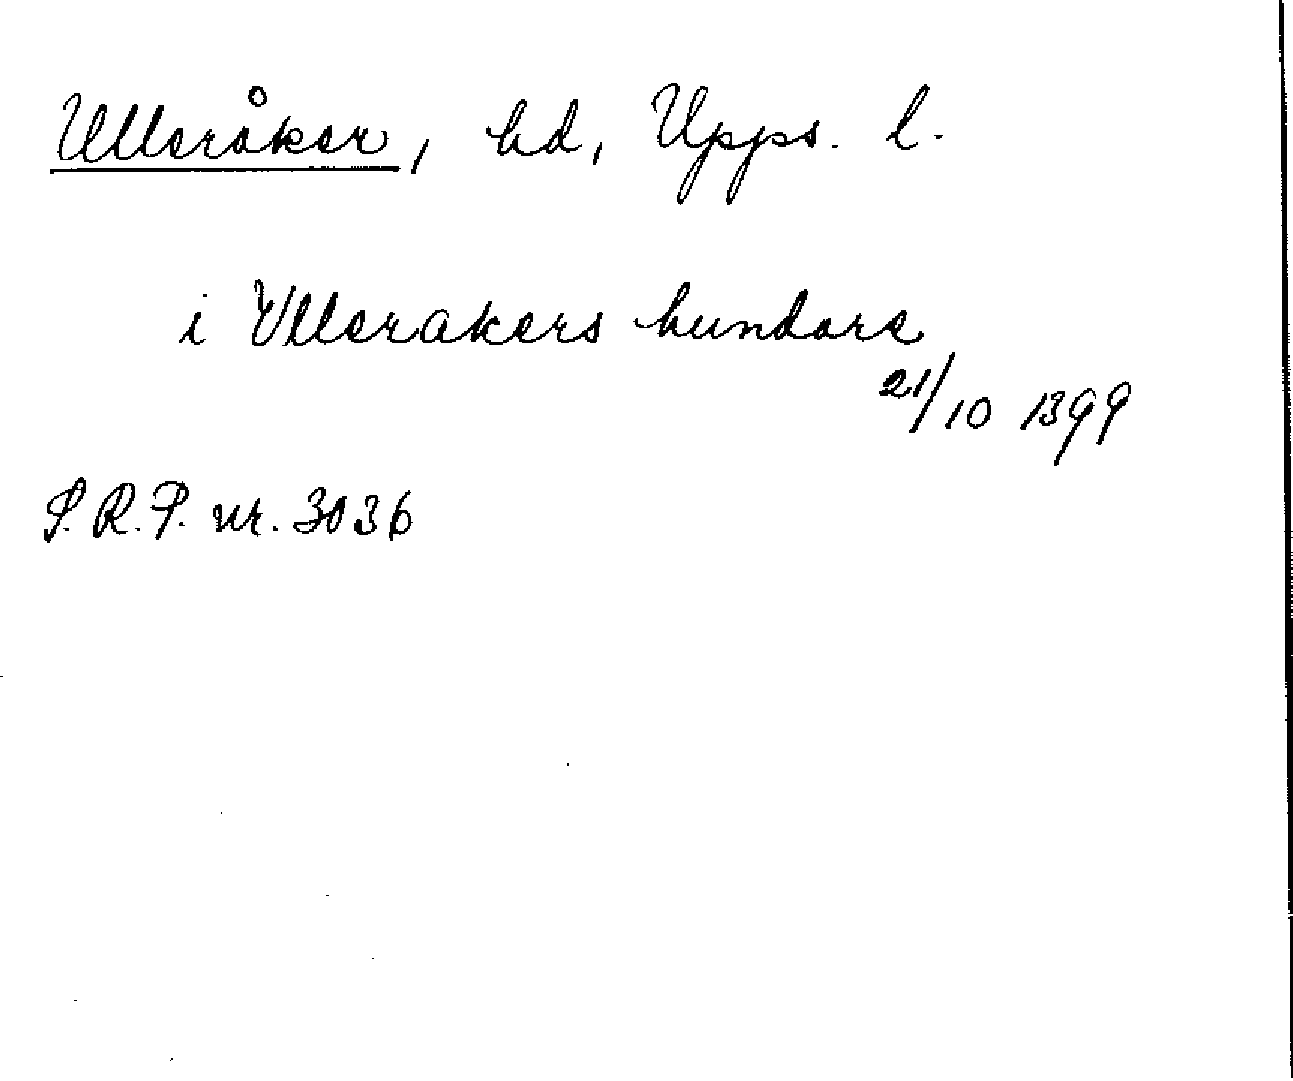 Ulleråker, hd, Upps. l.
i Vllerakers hundare
21/10 1399
S.R.P. nr. 3036